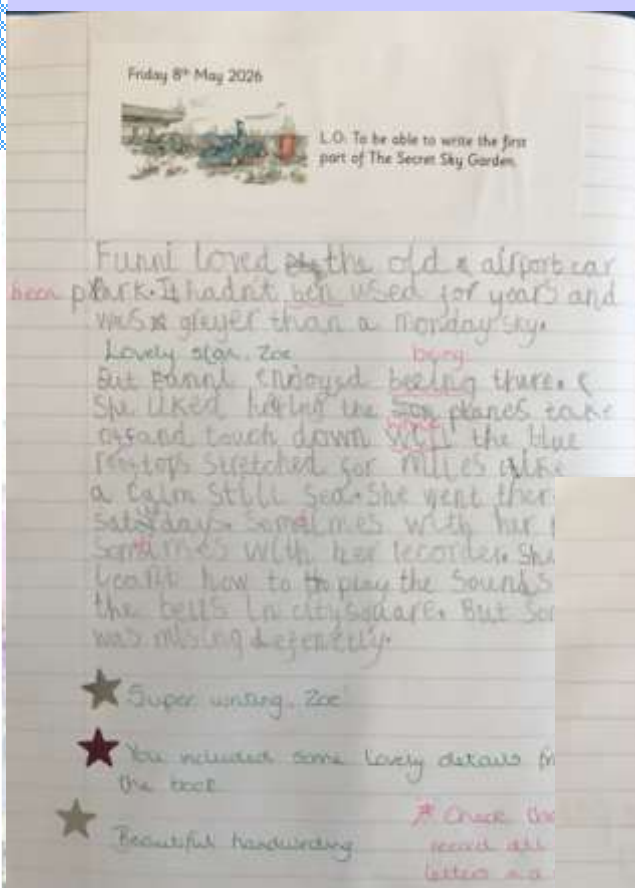 Friday 8th May 2026
L.O: To be able to write the first
part of The Secret Sky Garden.
Funni loved the old airport car
been park. It hadn't ben used for years and
was greyer than a monday sky.
Lovely start, Zoe being
But Funni enjoyed beeing there.
She liked the planes take
off and touch down the blue
rooftops stretched for miles like
a calm still sea. She went ther
saturdays. Sometimes with her
Sometimes with her recorder. She
how to play the sounds
the bells in city square. But Som
was mising defenetly.
Super writing, Zoe!
You included some lovely details fr
the book
Beautiful handwriting
Check tha
all
letters